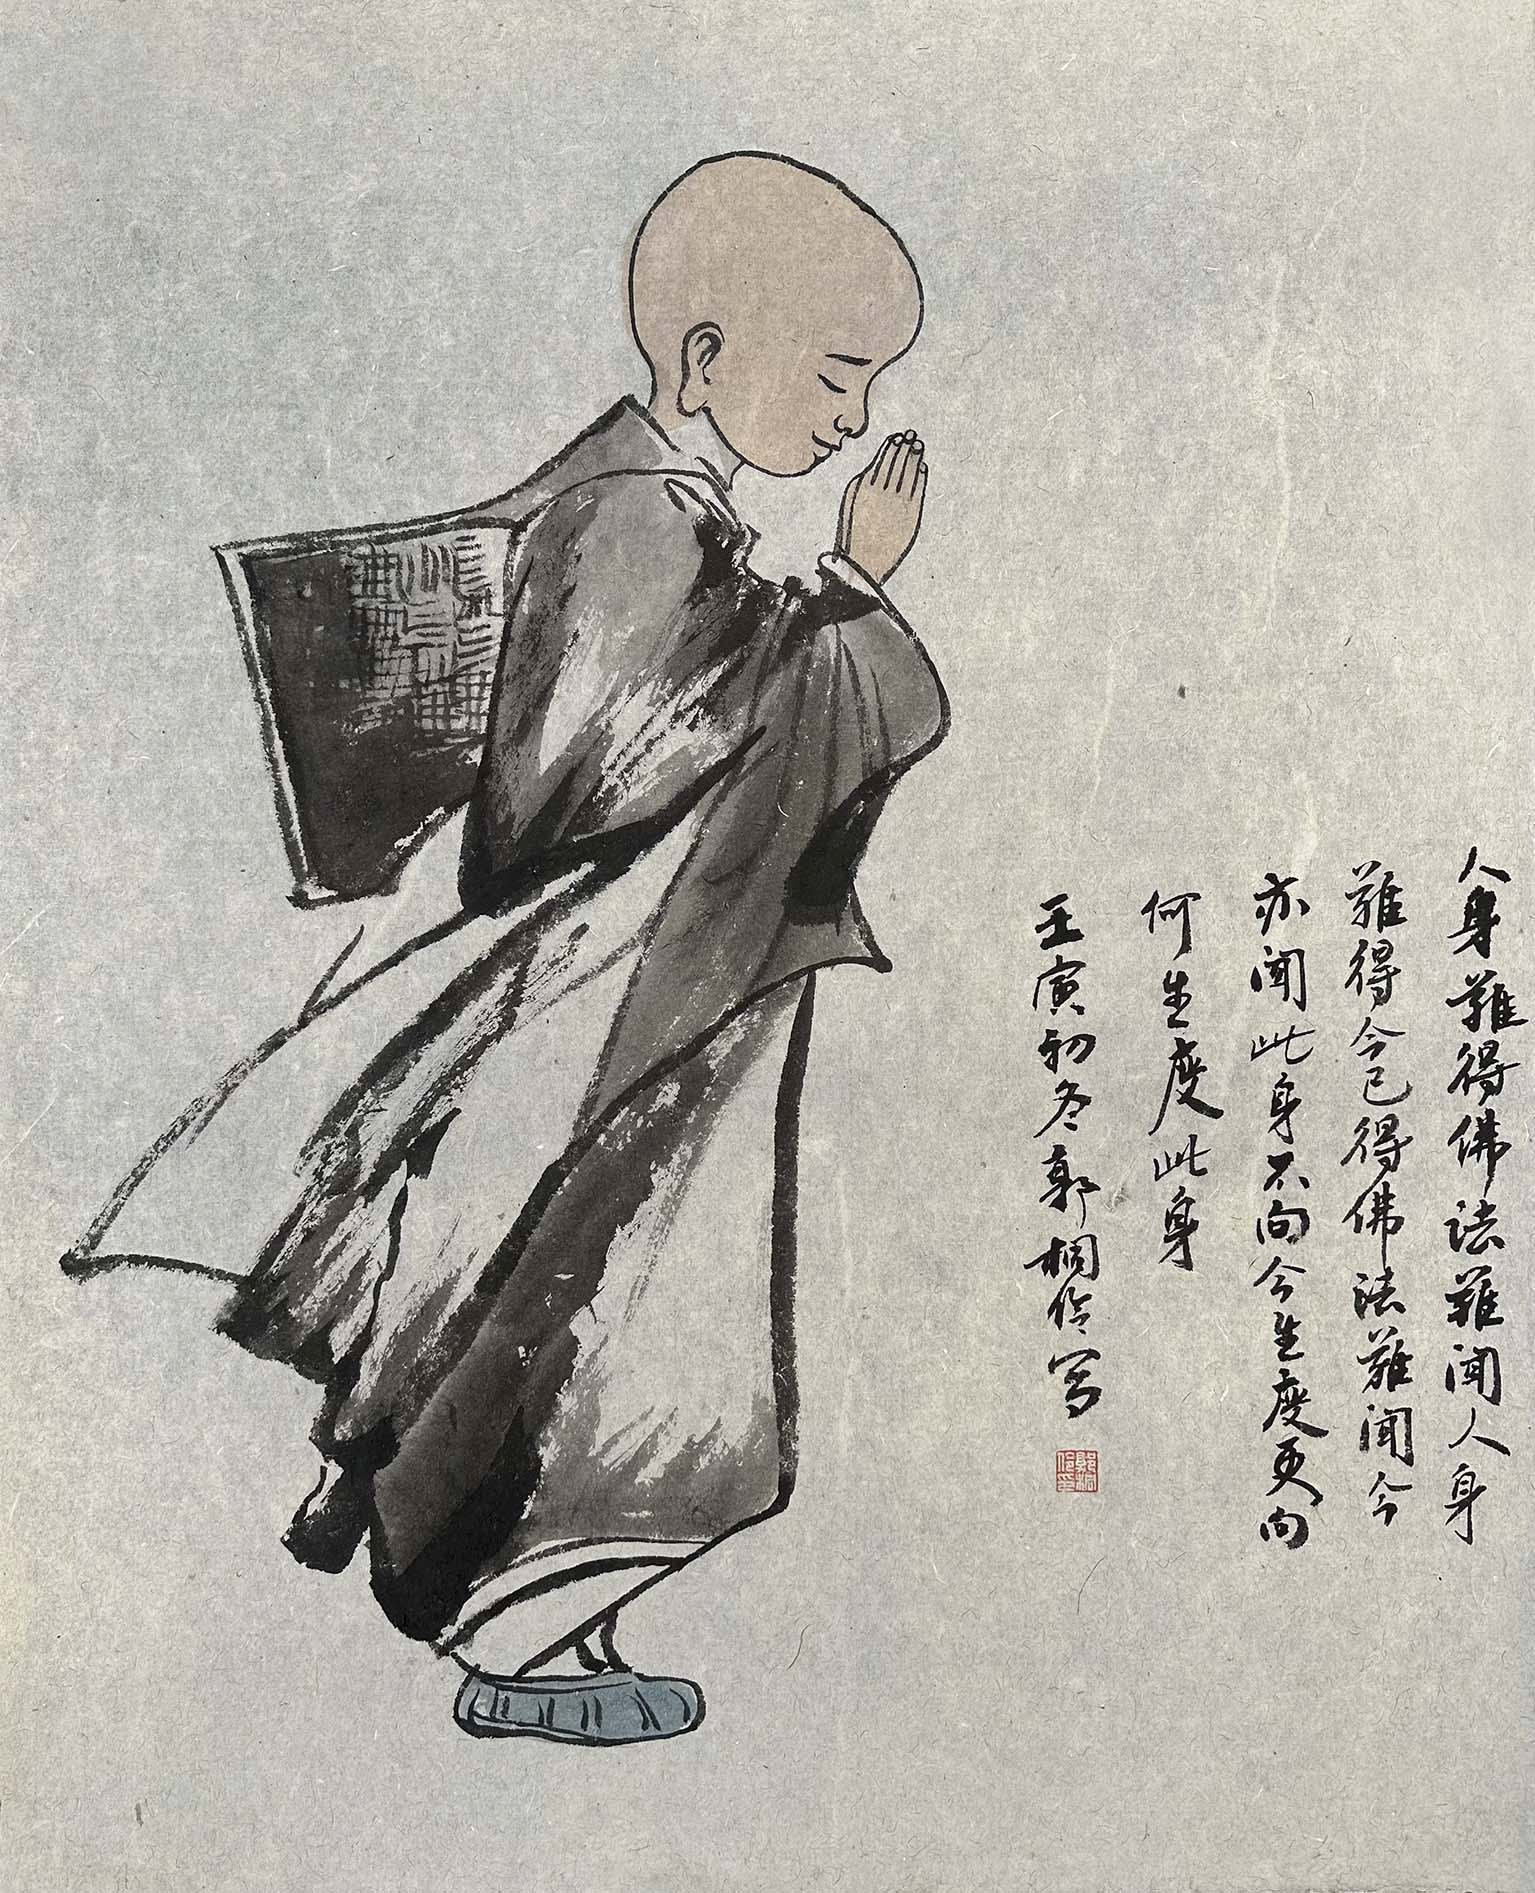 人身難得佛法難聞人身
難得今已得佛法難聞今
亦聞此身不向今生度更向
何生度此身
壬寅初冬郭桐伶写
郭桐伶印